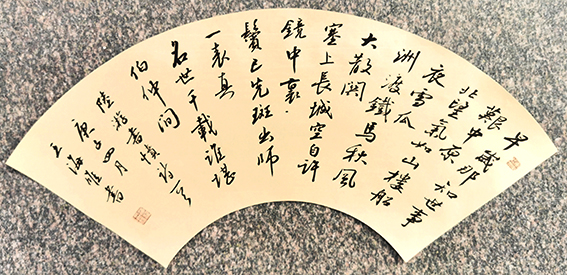 早歲那知世事
艱中原
北望氣如山樓船
夜雪瓜
洲渡鐵馬秋風
大散関
塞上長城空自許
鏡中衰
鬢已先斑出師
一表真
名世千載誰堪
伯仲間
陸游書憤詩
庚子四月
王海書